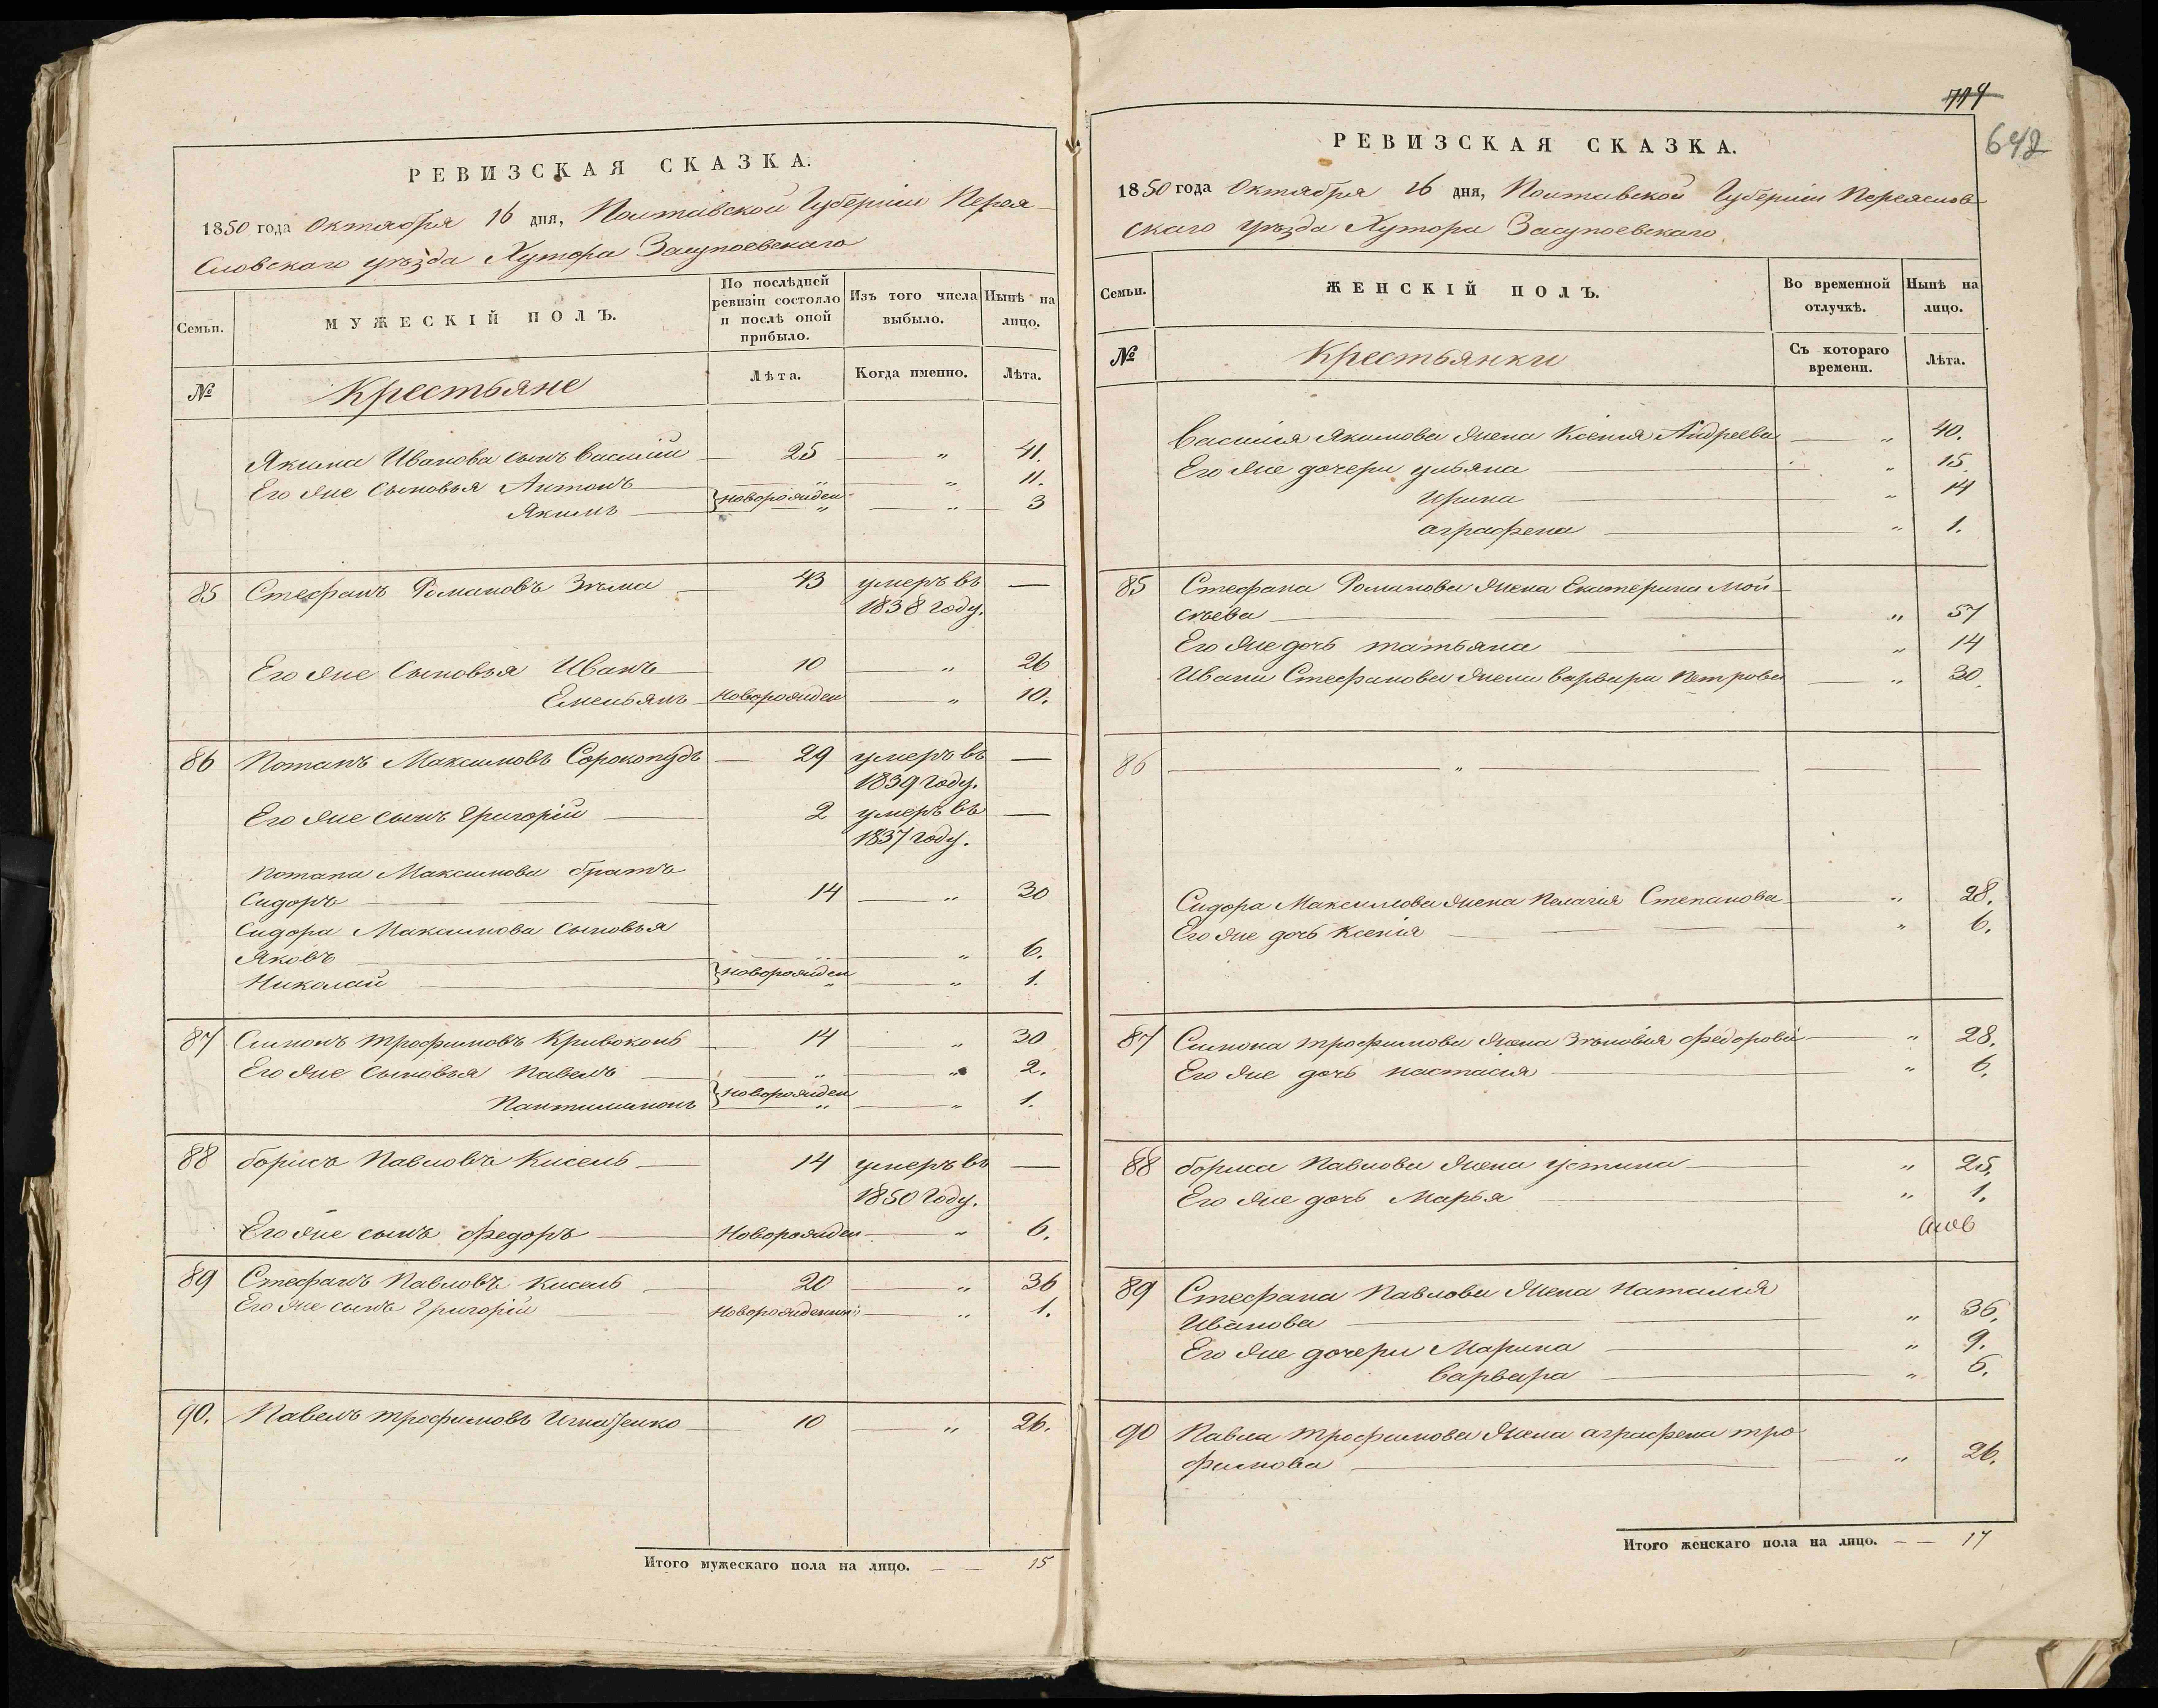 РЕВИЗСКАЯ СКАЗКА.
1850 года Октября 16 дня, Полтавской Губерніи Перея-
словскаго уѣзда Хутора Засупоевскаго
Семьи.
МУЖЕСКІЙ ПОЛЪ.
По послѣдней
ревизіи состояло
и послѣ оной
прибыло.
Изъ того числа
выбыло.
Нынѣ на
лицо.
№
Крестьяне
Лѣта.
Когда именно.
Лѣта.
Якима Иванова сынъ Василій 25 — „ 41.
Его же сыновья Антонъ „ „ 11.
} новорожден
Якимъ „ — „ 3
85 Стефанъ Романовъ Зѣма 43 умеръ въ —
1838 году.
Его же сыновья Иванъ 10 — „ 26
Емельянъ новорожден — „ 10.
86 Потапъ Максимовъ Сорокопудъ — 29 умеръ въ —
1839 году.
Его же сынъ Григорій — 2 умеръ въ —
1837 году.
Потапа Максимова братъ
Сидоръ — 14 — „ 30
Сидора Максимова сыновья
Яковъ — „ — „ 6.
} новорожден
Николай — „ — „ 1.
87 Симонъ Трофимовъ Кривоконь 14 „ 30
Его же сыновья Павелъ — „ — „ 2.
} новорожден
Пантилимонъ „ — „ 1.
88 Борисъ Павловъ Кисель — 14 умеръ въ —
1850 году.
Его же сынъ Федоръ — Новорожден — „ 6.
89 Стефанъ Павловъ Кисель 20 — „ 36
Его же сынъ Григорій — Новорожденный — „ 1.
90. Павелъ Трофимовъ — 10 — „ 26.
Итого мужескаго пола на лицо. — — 15
719
642
РЕВИЗСКАЯ СКАЗКА.
1850 года Октября 16 дня, Полтавской Губерніи Переяслов-
скаго уѣзда Хутора Засупоевскаго.
Семьи.
ЖЕНСКІЙ ПОЛЪ.
Во временной
отлучкѣ.
Нынѣ на
лицо.
№
Крестьянки
Съ котораго
времени.
Лѣта.
Василія Якимова жена Ксенія Андреева — „ 40.
Его же дочери Ульяна — „ 15.
Ирина — „ 14
Аграфена — „ 1.
85 Стефана Романова жена Екатерина Мой-
сѣева — „ 57
Его же дочь Татьяна — „ 14
Ивана Стефанова жена Варвара Петрова — „ 30.
86 — „ — — —
Сидора Максимова жена Пелагія Степанова — „ 28.
Его же дочь Ксенія — „ 6.
87 Симона Трофимова жена Зѣновія Федорова — „ 28.
Его же дочь Настасія — „ 6.
88 Бориса Павлова жена Устина — „ 25.
Его же дочь Марья — „ 1.
89 Стефана Павлова жена Наталія
Иванова — „ 36.
Его же дочери Марина — „ 9.
Варвара — „ 6.
90 Павла Трофимова жена Аграфена Тро-
фимова — „ 26.
Итого женскаго пола на лицо. — — 17